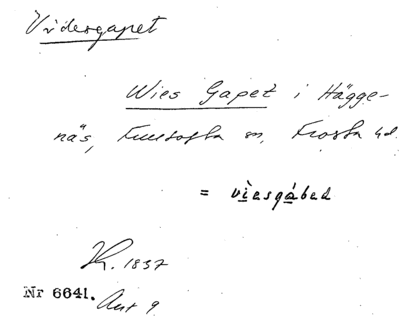 Vidersgapet
Wies Gapet i Hägge-
näs, Fulltofta sn, Frosta hd.
= viesgábed
1837
Nr 6641.
9